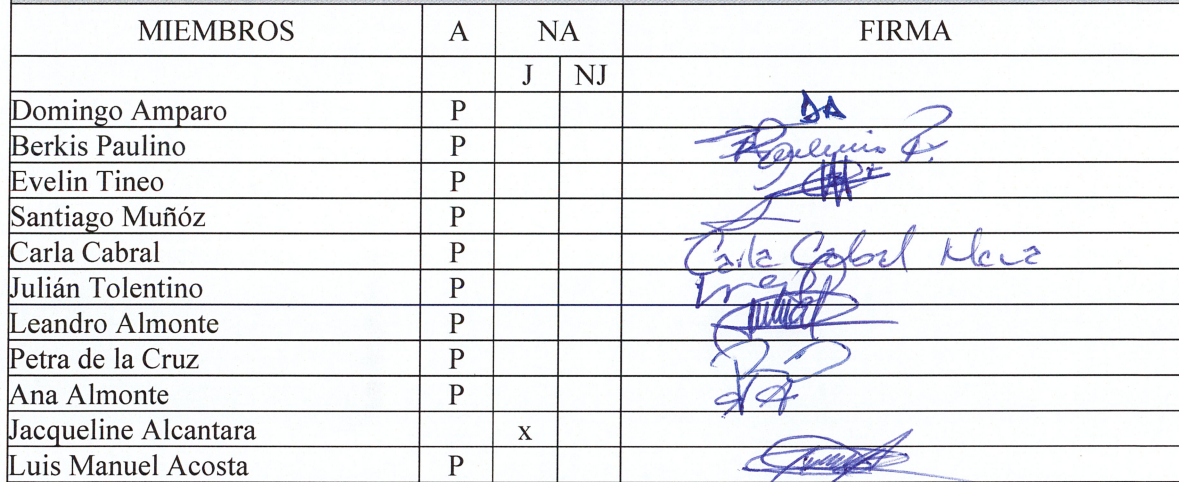 MIEMBROS A NA FIRMA
J NJ
Domingo Amparo P DA
Berkis Paulino P
Evelin Tineo P
Santiago Muñóz P
Carla Cabral P Carla Cabral Mena
Julián Tolentino P
Leandro Almonte P
Petra de la Cruz P
Ana Almonte P
Jacqueline Alcantara x
Luis Manuel Acosta P